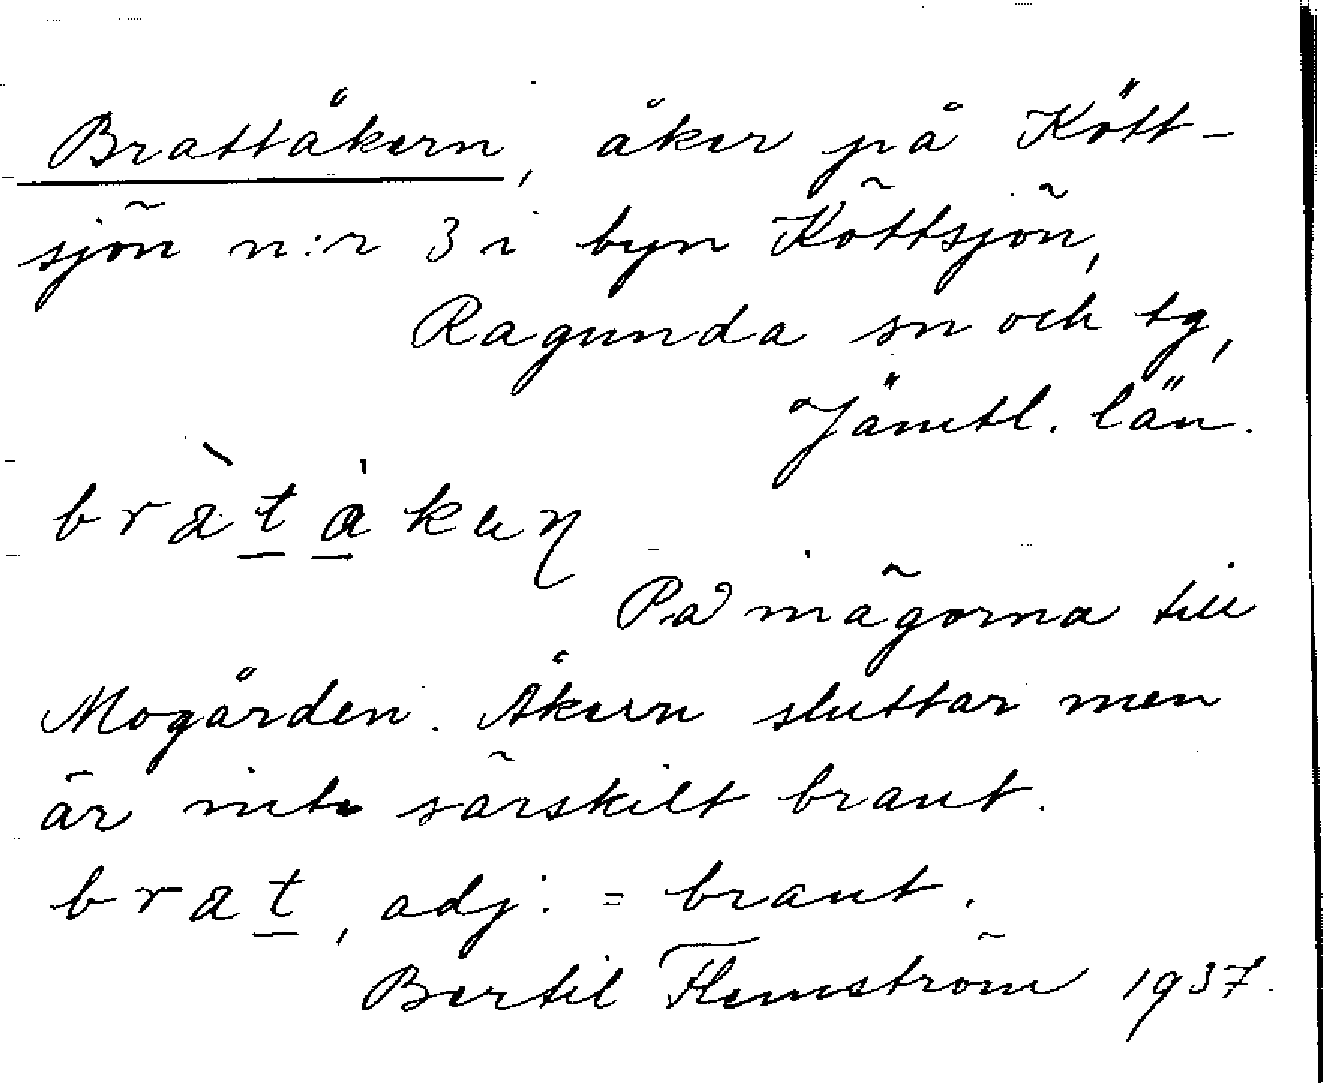 Brattåkern, åker på Kött-
sjön n:r 3 i byn Köttsjön,
Ragunda sn och tg,
Jämtl. län.
bràtákeɳ
På mägorna till
Mogården. Åkern sluttar men
är inte särskilt brant.
brat, adj. = brant.
Bertil Flemström 1937.